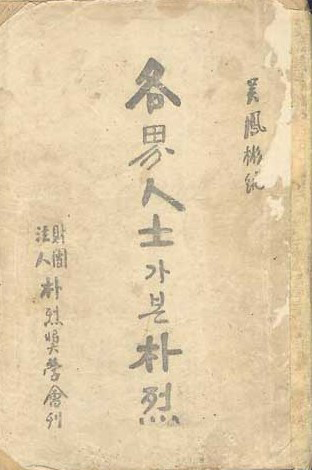 吳鳳彬 編
各界人士가본朴烈
財團
法人 朴烈奬學會刊